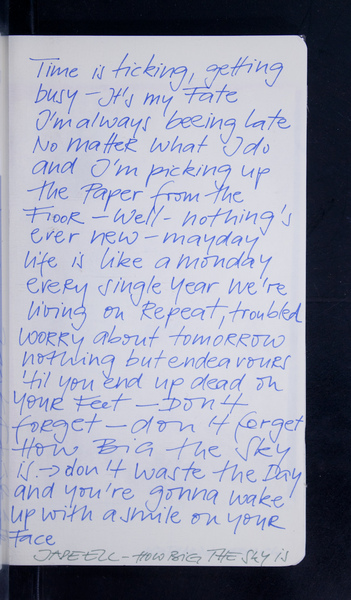 Time is ticking, getting
busy – It's my Fate
I'm always beeing late
No matter what I do
and I'm picking up
the Paper from the
Floor – Well – nothing's
ever new – mayday
life is like a monday
every single year we're
living on Repeat, troubled
worry about tomorrow
nothing but endeavours
'til you end up dead on
your Feet – Don't
forget – don't forget
How Big the Sky
is → don't waste the Day
and you're gonna wake
up with a smile on your
Face
– How Big The Sky is